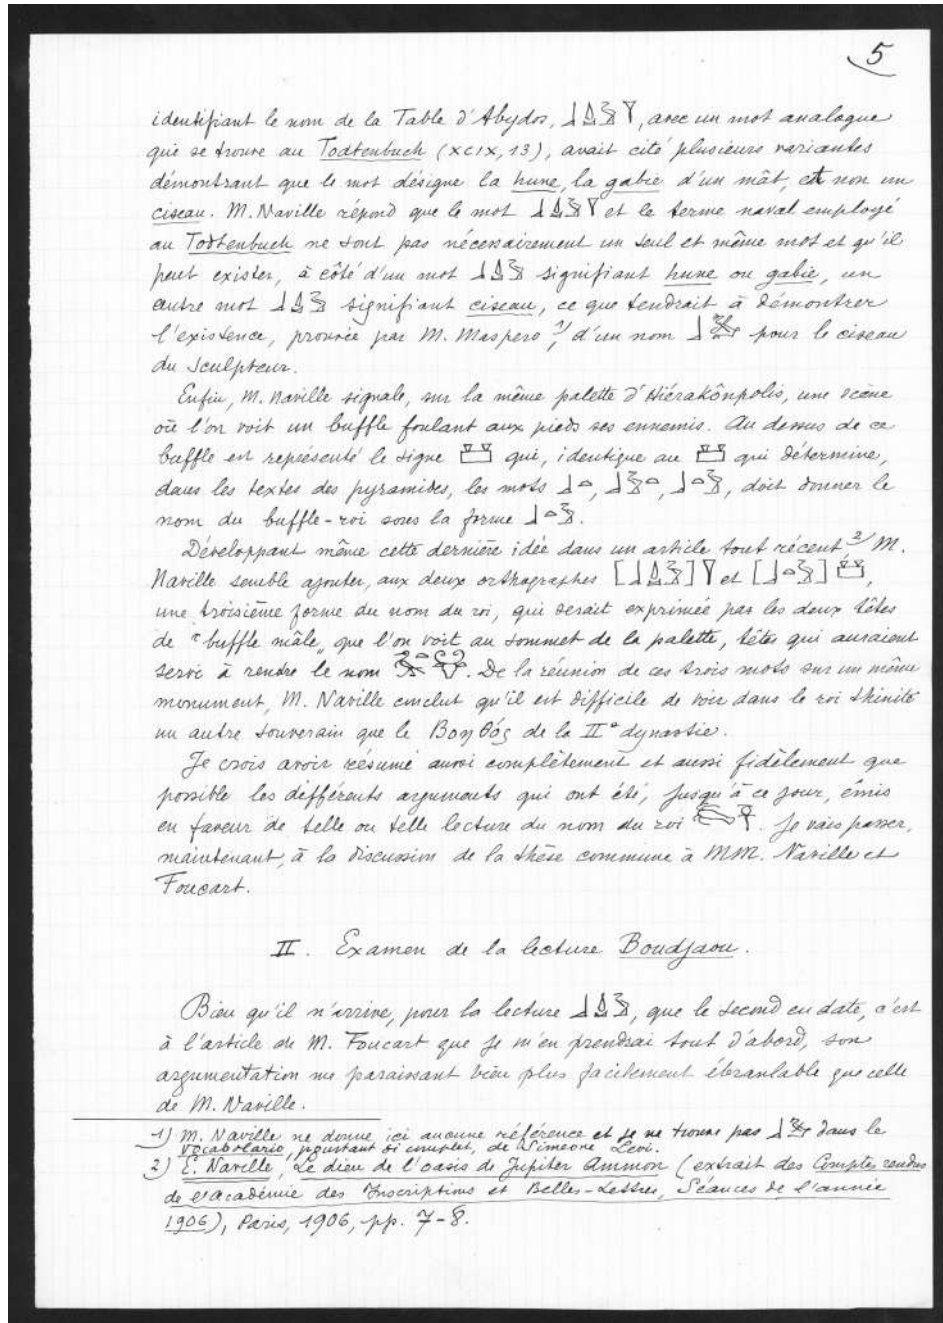 5
identifiant le nom de la Table d'Abydos, , avec un mot analogue
qui se trouve au Todtenbuch (XCIX, 13), avait cité plusieurs variantes
démontrant que le mot désigne la hune, la gabie d'un mât, et non un
ciseau. M. Naville répond que le mot et le terme naval employé
au Todtenbuch ne sont pas nécessairement un seul et même mot et qu'il
peut exister, à côté d'un mot signifiant hune ou gabie, un
autre mot signifiant ciseau, ce que tendrait à démontrer
l'existence, prouvée par M. Maspero 1), d'un nom pour le ciseau
du sculpteur.
Enfin, M. Naville signale, sur la même palette d'Hiérakônpolis, une scène
où l'on voit un buffle foulant aux pieds ses ennemis. Au dessus de ce
buffle est représenté le signe qui, identique au qui détermine,
dans les textes des pyramides, les mots , , , doit donner le
nom du buffle-roi sous la forme .
Développant même cette dernière idée dans un article tout récent 2), M.
Naville semble ajouter, aux deux orthographes [ ] et [ ] ,
une troisième forme du nom du roi, qui serait exprimée par les deux têtes
de "buffle mâle" que l'on voit au sommet de la palette, têtes qui auraient
servi à rendre le nom . De la réunion de ces trois mots sur un même
monument, M. Naville conclut qu'il est difficile de voir dans le roi thinite
un autre souverain que le de la IIe dynastie.
Je crois avoir résumé aussi complètement et aussi fidèlement que
possible les différents arguments qui ont été, jusqu'à ce jour, émis
en faveur de telle ou telle lecture du nom du roi . Je vais passer,
maintenant, à la discussion de la thèse commune à MM. Naville et
Foucart.
II. Examen de la lecture Boudjaou.
Bien qu'il n'arrive, pour la lecture , que le second en date, c'est
à l'article de M. Foucart que je m'en prendrai tout d'abord, son
argumentation me paraissant bien plus facilement ébranlable que celle
de M. Naville.
1) M. Naville ne donne ici aucune référence et je ne trouve pas dans le
Vocabolario, pourtant si complet, de Simeone Levi.
2) E. Naville, Le dieu de l'oasis de Jupiter Ammon (extrait des Comptes rendus
de l'Académie des Inscriptions et Belles-Lettres, Séances de l'année
1906), Paris, 1906, pp. 7-8.